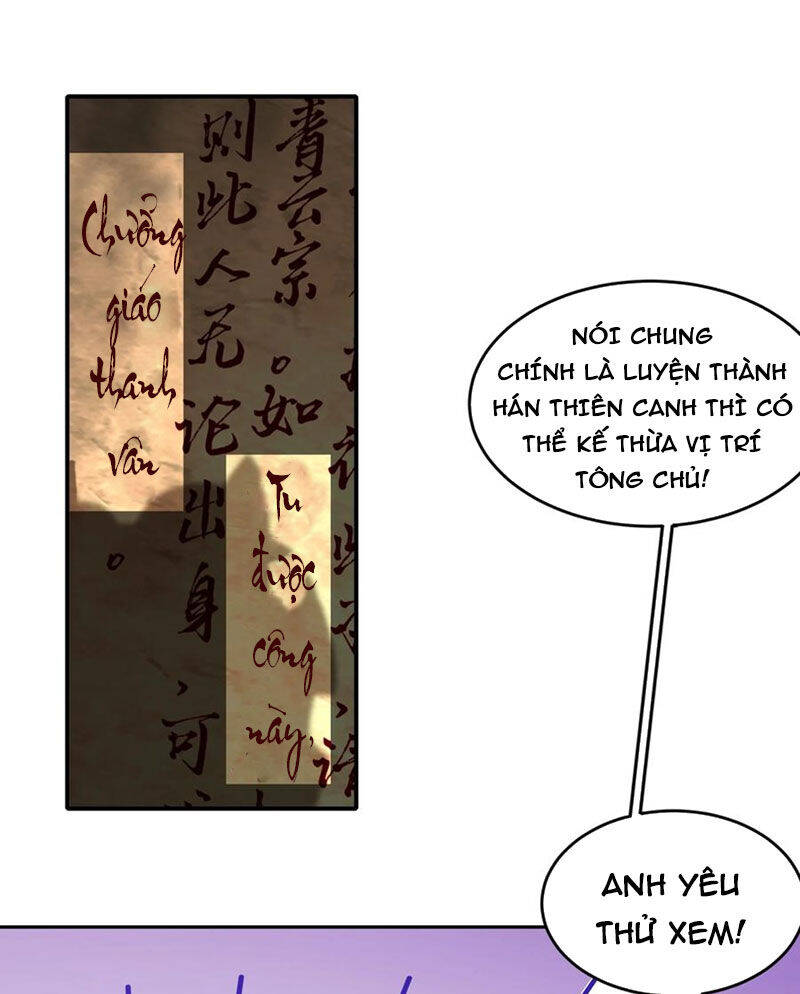 Chưởng
giáo
thanh
vân
Tu
được
công
này,
青云宗。如
则此人无论出身，可
NÓI CHUNG
CHÍNH LÀ LUYỆN THÀNH
HÁN THIÊN CANH THÌ CÓ
THỂ KẾ THỪA VỊ TRÍ
TÔNG CHỦ!
ANH YÊU
THỬ XEM!